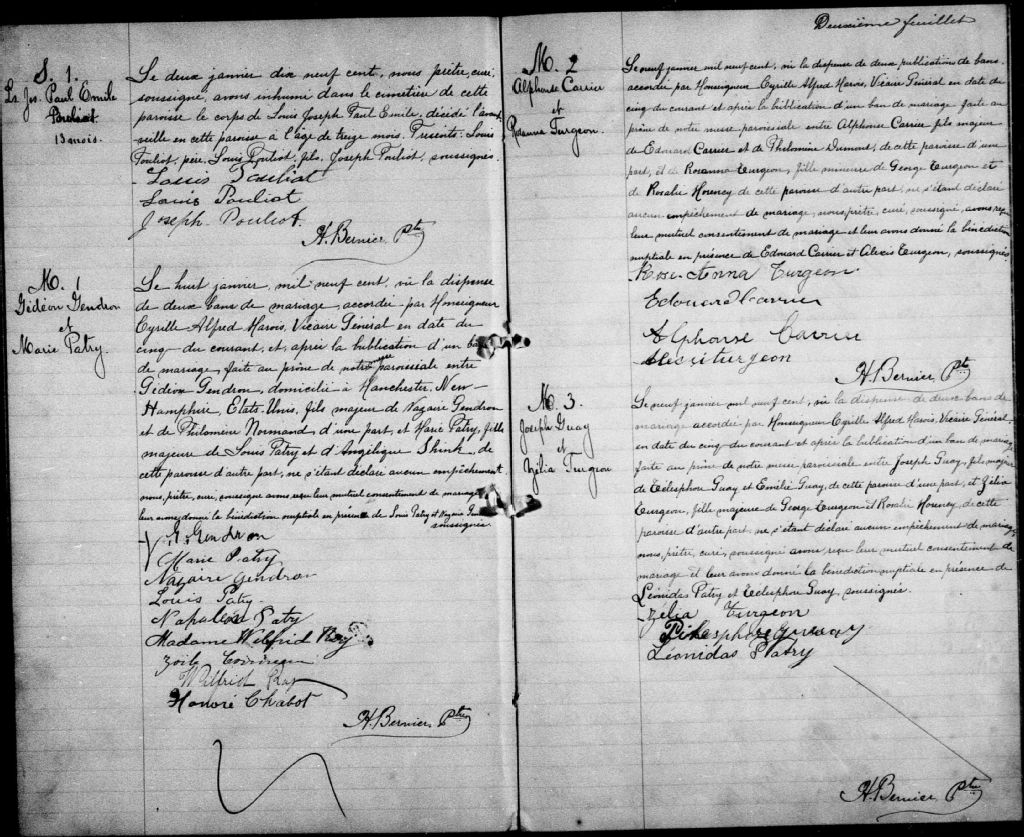 S. 1.
Ls Jos. Paul Emile
Pouliot
13 mois.
Le deux janvier dix neuf cent, nous prêtre, curé,
soussigné, avons inhumé dans le cimetière de cette
paroisse le corps de Louis Joseph Paul Emile, décédé l'avant
veille en cette paroisse à l'âge de treize mois. Présents: Louis
Pouliot, père, Louis Pouliot, fils, Joseph Pouliot, soussignés.
Louis Pouliot
Louis Pouliot
Joseph Pouliot.
H. Bernier Ptre
M. 1
Gédéon Gendron
et
Marie Patry.
Le huit janvier, mil neuf cent, vu la dispense
de deux bans de mariage accordée par Monseigneur
Cyrille Alfred Marois, Vicaire Général en date du
cinq du courant, et, après la publication d'un ban
de mariage faite au prône de notre messe paroissiale entre
Gédéon Gendron, domicilié à Manchester, New-
Hamphire, Etats-Unis, fils majeur de Nazaire Gendron
et de Philomène Normand d'une part, et Marie Patry, fille
majeure de Louis Patry et d'Angélique Shink, de
cette paroisse d'autre part, ne s'étant déclaré aucun empêchement
nous, prêtre, curé, soussigné avons reçu leur mutuel consentement de mariage
leur avons donné la bénédiction nuptiale en présence de Louis Patry et Nazaire
soussignés
G. Gendron
Marie Patry
Nazaire Gendron
Louis Patry
Napoléon Patry
Madame Wilfrid Roy
Zoile
Wilfrid Roy
Honoré Chabot
H. Bernier, Ptre
Deuxième feuillet
M. 2
Alphonse Carrier
et
Rosanna Turgeon.
Le neuf janvier mil neuf cent, vu la dispense de deux publication de bans
accordée par Monseigneur Cyrille Alfred Marois, Vicaire Général en date du
cinq du courant et après la publication d'un ban de mariage faite au
prône de notre messe paroissiale entre Alphonse Carrier fils majeur
de Edouard Carrier et de Philomine Dumont, de cette paroisse d'une
part, et de Rosanna Turgeon, fille mineure de George Turgeon et
de Rosalie de cette paroisse d'autre part, ne s'étant déclaré
aucun empêchement de mariage, nous, prêtre, curé, soussigné, avons reçu
leur mutuel consentement de mariage et leur avons donné la bénédiction
nuptiale en présence de Edouard Carrier et Alexis Turgeon, soussignés
Rose-Anna Turgeon
Edouard Carrier
Alphonse Carrier
Alexis turgeon
H. Bernier Ptre
M. 3.
Joseph Guay
et
Zélia Turgeon
Le neuf janvier mil neuf cent, vu la dispense de deux bans de
mariage accordée par Monseigneur Cyrille Alfred Marois, Vicaire Général,
en date du cinq du courant et après la publication d'un ban de mariage
faite au prône de notre messe paroissiale entre Joseph Guay, fils majeur
de Télesphore Guay et Emélie Guay, de cette paroisse d'une part, et Zélia
Turgeon, fille majeure de George Turgeon et Rosalie de cette
paroisse d'autre part, ne s'étant déclaré aucun empêchement de mariage,
nous, prêtre, curé, soussigné avons reçu leur mutuel consentement de
mariage et leur avons donné la bénédiction nuptiale en présence de
Léonidas Patry et Télesphore Guay, soussignés.
Zélia Turgeon
Guay
Léonidas Patry
H. Bernier Ptre